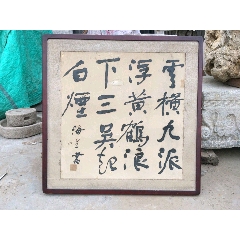 雲横九派
浮黄鶴浪
下三吴起
白煙
海兰書